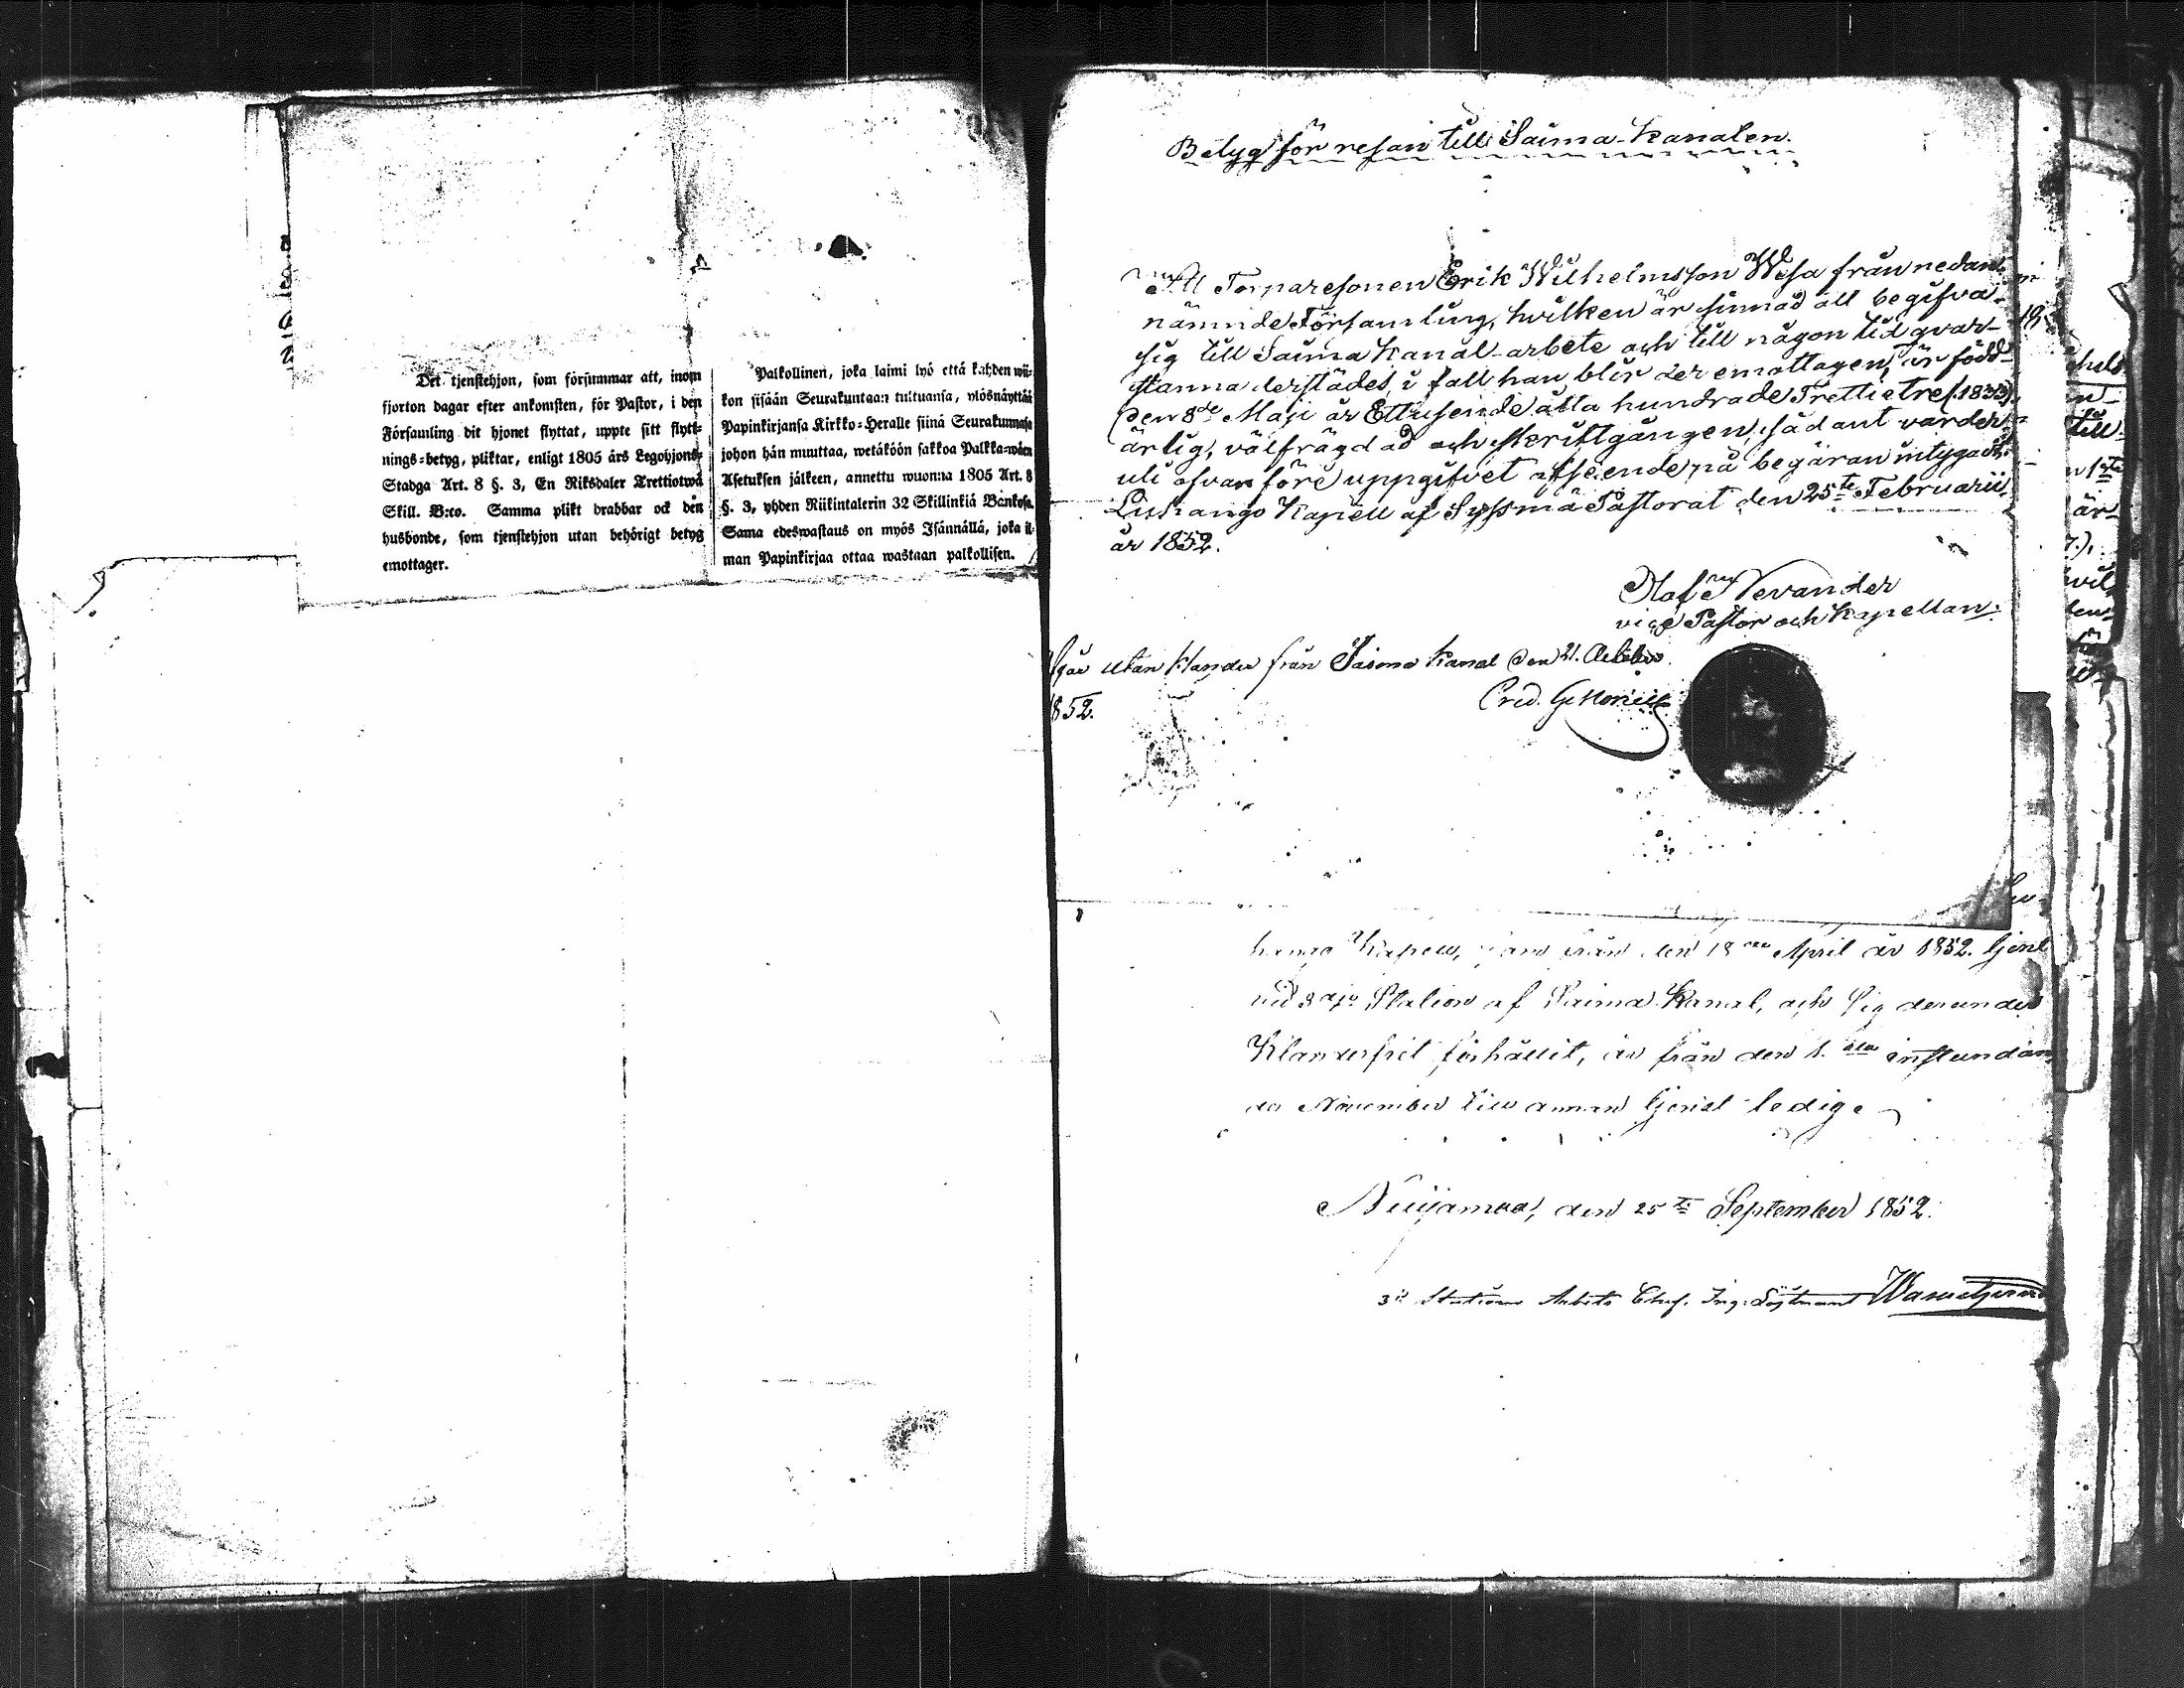 Det tjenstehjon, som försummar att, inom
fjorton dagar efter ankomsten, för Pastor, i den
Församling dit hjonet flyttat, uppte sitt flytt-
nings-betyg, pliktar, enligt 1805 års Legohjons-
Stadga Art. 8 §. 3, En Riksdaler Trettiotwå
Skill. B:co. Samma plikt drabbar ock den
husbonde, som tjenstehjon utan behörigt betyg
emottager.
Palkollinen, joka laimi lyö että kahden wii-
kon sisään Seurakuntaan tultuansa, ylösnäyttää
Papinkirjansa Kirkko-Heralle siinä Seurakunnasa
johon hän muuttaa, wetäköön sakkoa Palkka-wäen
Asetuksen jälkeen, annettu wuonna 1805 Art. 8
§. 3, yhden Riikintalerin 32 Skillinkiä Bankosa.
Sama edeswastaus on myös Isännällä, joka il-
man Papinkirjaa ottaa wastaan palkollisen.
Betyg för resan till Saima-Kanalen.
Att Torparesonen Erik Wilhelmsson Wesa från nedan-
nämnde Församling, hvilken är sinnad att begifva
sig till Saima Kanal-arbete och till någon tid qvar-
stanna derstädes, i fall han blir der emottagen, är född
den 8de Maji år Ettusende åtta hundrade Trettietre (1833),
ärlig, välfrägdad och skriftgången, sådant varder
uti ofvanföre uppgifvet afseende på begäran intygadt.
Luhango Kapell af Sysmä Pastorat den 25te Februarii
år 1852.
Olof Nevander
vice Pastor och Kapellan.
utan klander från Saima Kanal den 21. October
1852.
Kapell, från den 18 April år 1852. tjent
vid 3dje Station af Saima Kanal, och sig derunder
Klanderfritt förhållit, är från den 1. instundan-
de November till annan tjenst ledig.
Nuijamaa, den 25te September 1852.
3de Stations Arbets Chef. Ing. Löjtnant